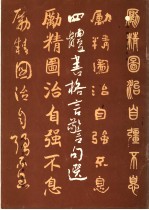 勵精圖治自强不息
勵精圖治自强不息
四體書格言警句選
勵精圖治自强不息
励精图治自强不息